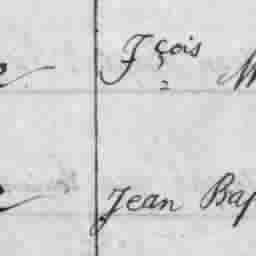 Fçois
Jean Bap